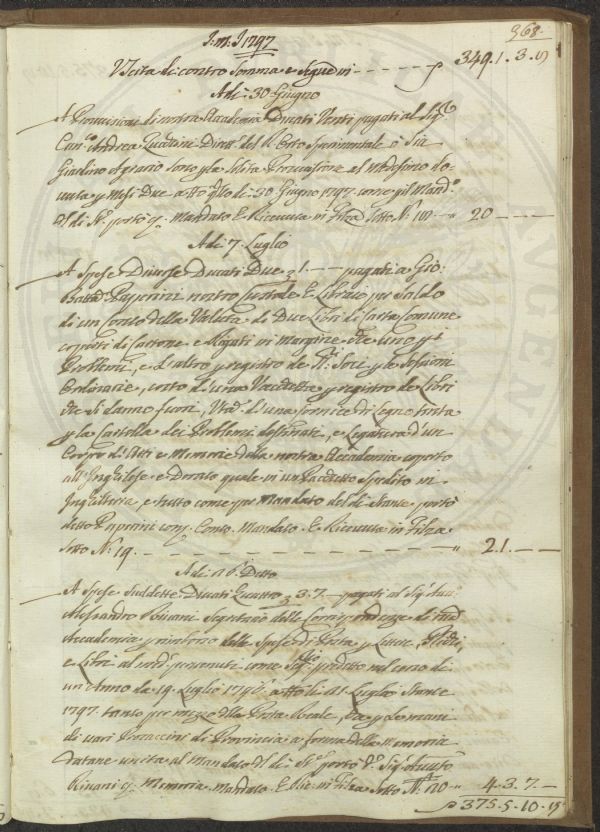 368.
I. M. I 1797
Uscita di contro Somma e Segue in - - - - - ƒ 349.1.3.19
Adi 30 Giugno
A Provvisioni di nostra Accademia Ducati Venti pagati al Sig.r
Can.co Andrea Zucchini Dirett.e del R. Orto Sperimentale o Sia
Giardino Agrario sono p. la solita Provvisione al Medesimo do-
vuta p. Mesi Due a tto q.llo di 30 Giugno 1797. come p. il Mand.o
del di S.e portò q. Mandato E Ricevuta in Filza Sotto N.o 18 - " 20 - - - -
Adi 7. Luglio
A Spese Diverse Ducati Due 1. - - pagati a Gio:
Batta Paperini nostro Custode E Libraio per Saldo
di un Conto della Valuta di Due Libri di Carta Comune
coperti di Cartone e Slegati in Margine che uno p. i
Problemi, e l'altro p. registro de SS. Soci p. le Sessioni
Ordinarie, costo d'una Vacchetta p. registro de Libri
che si danno fuori, Val.a d'una Cornice di Legno tinta
p. la Cartella dei Problemi destinati, e Legatura d'un
Corpo d'Atti e Memorie della nostra Accademia coperto
all'Inghilese e Dorato quale in un Pacchetto Spedito in
Inghilterra, e tutto come per Mandato del di Stante portò
detto Paperini con Conto. Mandato. E Ricevuta in Filza
Sotto N.o 19. - - - - - - - - - " 21. - - -
Adi 26 Detto
A Spese Suddette Ducati Quattro 3.7. - pagati al Sig.r Avv.
Alessandro Rivani Segretario delle Corrispondenze di nostra
Accademia p. rimborso delle Spese di Posta p. Lettere, Plichi,
e Libri al med.o pervenuti come Seg.rio predetto nel corso di
un Anno da 19. Luglio 1796 a tto li 21. Luglio Stante
1797. tanto per mezzo della Posta Reale, che p. le mani
di vari Procaccini di Provincia a forma della Memoria
datane unita al Mandato del di S.e portò d.o Sig.r Avv.to
Rivani q. Memoria. Mandato. E Ric. in Filza Sotto N.o 20 - " 4.3.7. -
ƒ 375.5.10.19